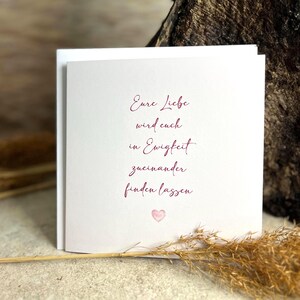 Eure Liebe
wird euch
in Ewigkeit
zueinander
finden lassen